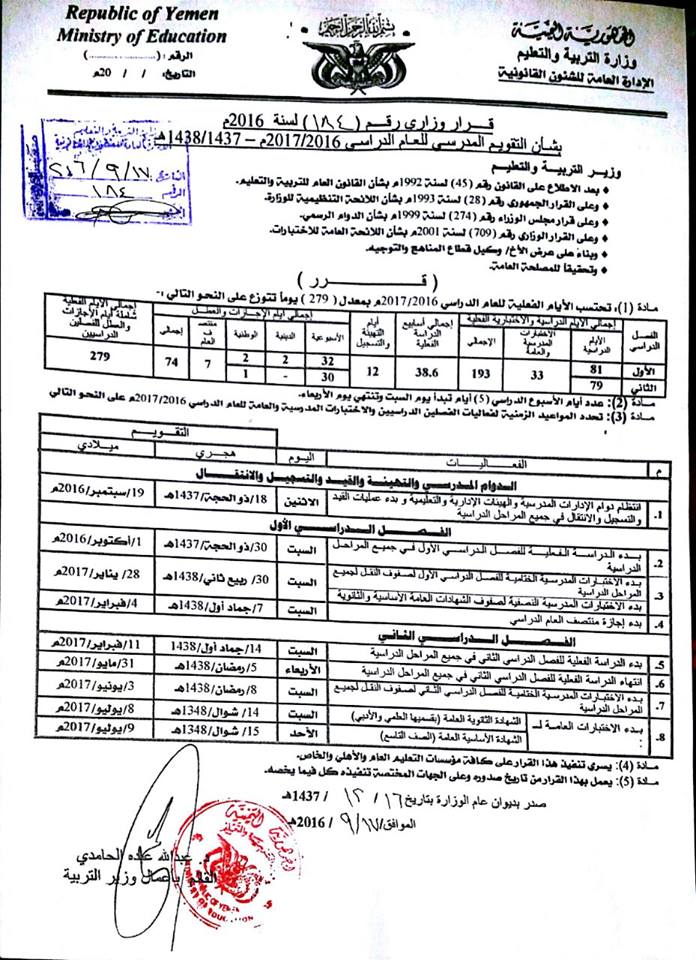 Republic of Yemen
Ministry of Education
الرقم: (..................)
التاريخ: / / 20م
بسم الله الرحمن الرحيم
الجمهورية اليمنية
وزارة التربية والتعليم
الإدارة العامة للشئون القانونية
قرار وزاري رقم (١٨٤) لسنة 2016م
بشأن التقويم المدرسي للعام الدراسي 2017/2016م – 1438/1437هـ
التاريخ ٢٠١٦/٩/١٧
الرقم ١٨٤
وزير التربية والتعليم
• بعد الاطلاع على القانون رقم (45) لسنة 1992م بشأن القانون العام للتربية والتعليم.
• وعلى القرار الجمهوري رقم (28) لسنة 1993م بشأن اللائحة التنظيمية للوزارة.
• وعلى قرار مجلس الوزراء رقم (274) لسنة 1999م بشأن الدوام الرسمي.
• وعلى القرار الوزاري رقم (709) لسنة 2001م بشأن اللائحة العامة للاختبارات.
• وبناءً على عرض الأخ/ وكيل قطاع المناهج والتوجيه.
• وتحقيقاً للمصلحة العامة.
( قــرر )
مادة (1): تحتسب الأيام الفعلية للعام الدراسي 2017/2016م بمعدل ( 279 ) يوماً تتوزع على النحو التالي :-
الفصل الدراسي
إجمالي الأيام الدراسية والاختبارية الفعلية
الأيام الدراسية
الاختبارات المدرسية والعامة
الإجمالي
إجمالي أسابيع الدراسة الفعلية
أيام التهيئة والتسجيل
إجمالي أيام الإجازات والعطل
الأسبوعية
الدينية
الوطنية
منتصف العام
إجمالي
إجمالي الأيام الفعلية شاملة أيام الإجازات والعطل للفصلين الدراسيين
الأول 81 33 193 38.6 12 32 2 2 7 74 279
الثاني 79 30 - 1
مادة (2): عدد أيام الأسبوع الدراسي (5) أيام تبدأ يوم السبت وتنتهي يوم الأربعاء.
مادة (3): تحدد المواعيد الزمنية لفعاليات الفصلين الدراسيين والاختبارات المدرسية والعامة للعام الدراسي 2017/2016م على النحو التالي
م الفعـــاليـــات اليوم التقويم
هجري ميلادي
الدوام المدرسي والتهيئة والقيد والتسجيل والانتقال
1. انتظام دوام الإدارات المدرسية والهيئات الإدارية والتعليمية و بدء عمليات القيد والتسجيل والانتقال في جميع المراحل الدراسية الاثنين 18/ذو الحجة/1437هـ 19/سبتمبر/2016م
الفصل الدراسي الأول
2. بدء الدراسة الفعلية للفصل الدراسي الأول في جميع المراحل الدراسية السبت 30/ذو الحجة/1437هـ 1/أكتوبر/2016م
3. بدء الاختبارات المدرسية الختامية للفصل الدراسي الأول لصفوف النقل لجميع المراحل الدراسية السبت 30/ ربيع ثاني/1438هـ 28/ يناير/2017م
بدء الاختبارات المدرسية النصفية لصفوف الشهادات العامة الأساسية والثانوية
4. بدء إجازة منتصف العام الدراسي السبت 7/جماد أول/1438هـ 4/فبراير/2017م
الفصل الدراسي الثاني
5. بدء الدراسة الفعلية للفصل الدراسي الثاني في جميع المراحل الدراسية السبت 14/جماد أول/1438 11/فبراير/2017م
6. انتهاء الدراسة الفعلية للفصل الدراسي الثاني في جميع المراحل الدراسية الأربعاء 5/رمضان/1438هـ 31/مايو/2017م
7. بدء الاختبارات المدرسية الختامية للفصل الدراسي الثاني لصفوف النقل لجميع المراحل الدراسية السبت 8/رمضان/1438هـ 3/يونيو/2017م
8. بدء الاختبارات العامة لـ : الشهادة الثانوية العامة (بقسميها العلمي والأدبي) السبت 14/ شوال/1348هـ 8/يوليو/2017م
الشهادة الأساسية العامة (الصف التاسع) الأحد 15/ شوال/1348هـ 9/يوليو/2017م
مادة (4): يسري تنفيذ هذا القرار على كافة مؤسسات التعليم العام والأهلي والخاص.
مادة (5): يعمل بهذا القرار من تاريخ صدوره وعلى الجهات المختصة تنفيذه كل فيما يخصه.
صدر بديوان عام الوزارة بتاريخ ١٦/ ١٢ / 1437هـ
الموافق ٩/١٧ /2016م
د. عبدالله عبده الحامدي
القائم بأعمال وزير التربية
REPUBLIC OF YEMEN
MINISTRY OF EDUCATION